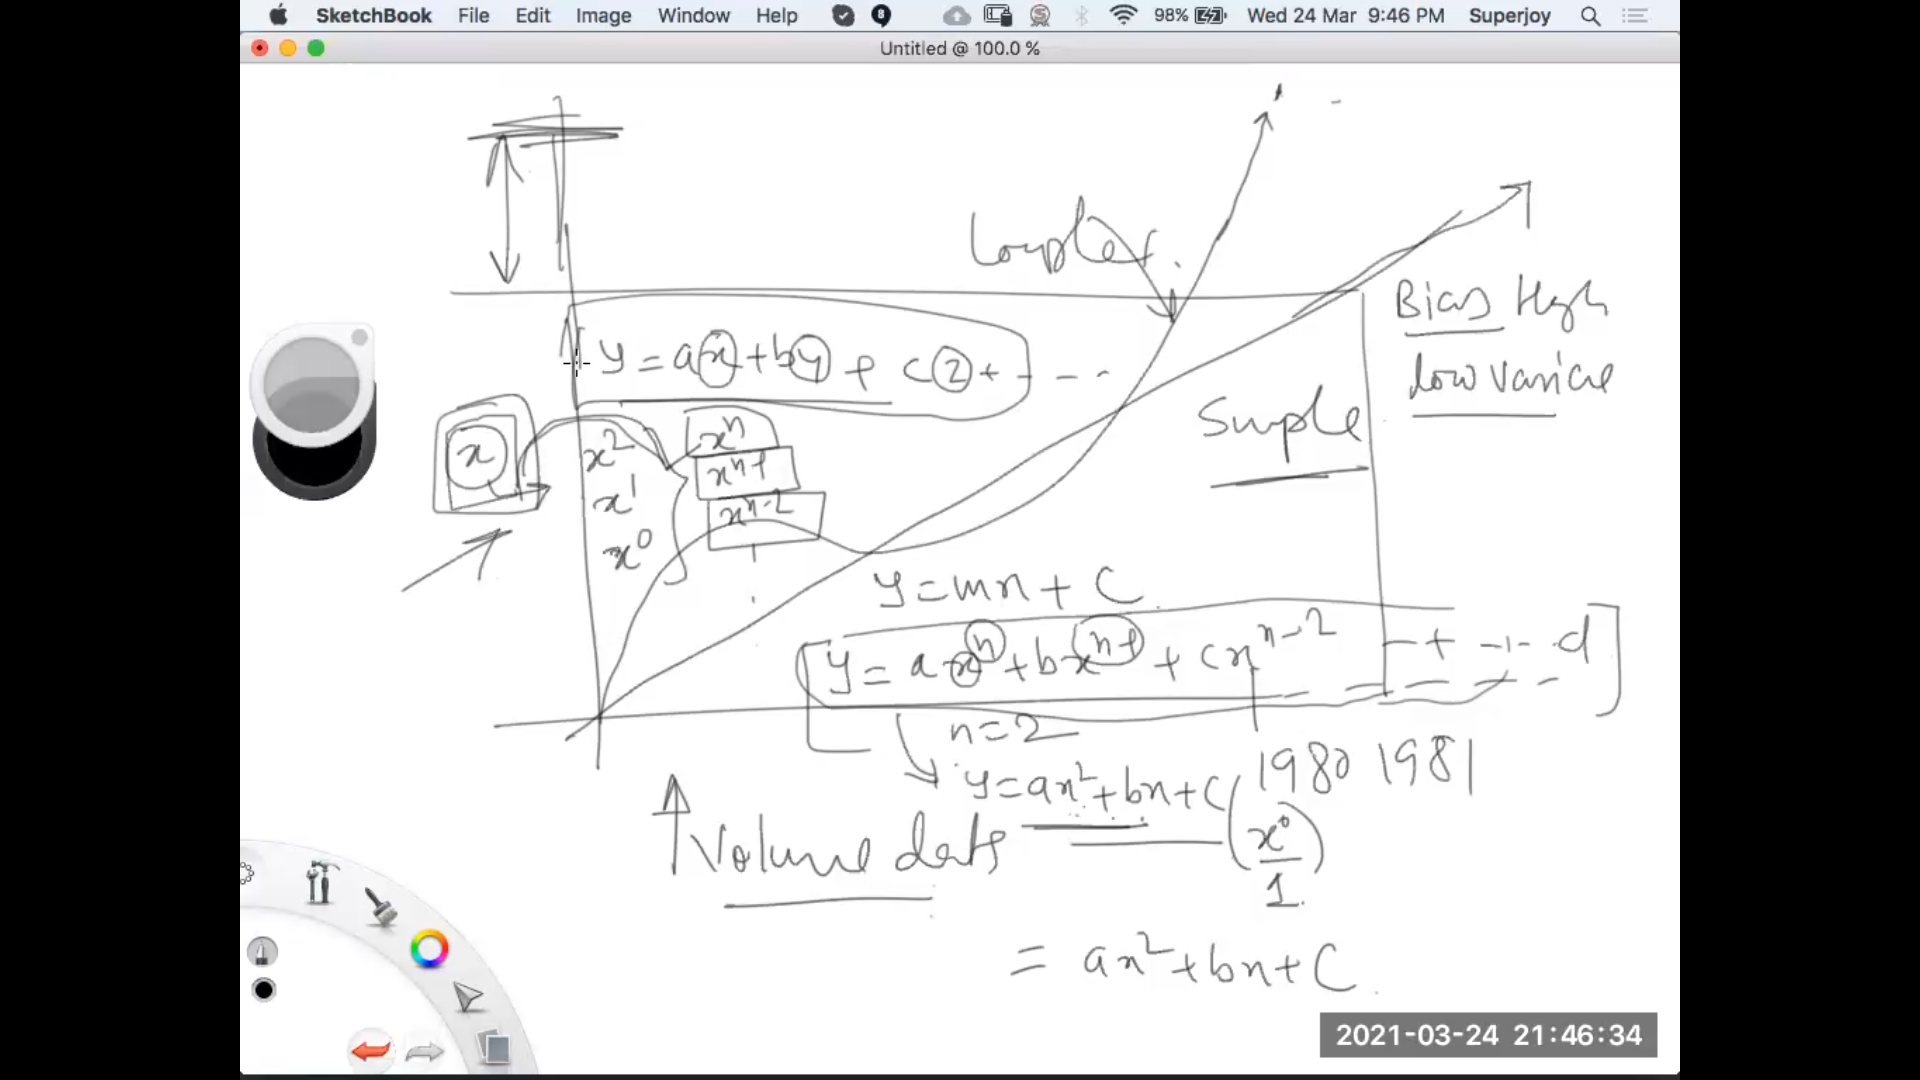 SketchBook File Edit Image Window Help 8 98% Wed 24 Mar 9:46 PM Superjoy
Untitled @ 100.0 %
Complex.
Bias High
low variance
y = ax + by + cz + - - -
Simple
x
x² xⁿ
x¹ xⁿ⁻¹
x⁰ xⁿ⁻²
y = mx + C
y = axⁿ + bxⁿ⁻¹ + cxⁿ⁻² - + - + - d
n = 2
1980 1981
y = ax² + bx + C
(x⁰/1)
Volume data
= ax² + bx + C
2021-03-24 21:46:34